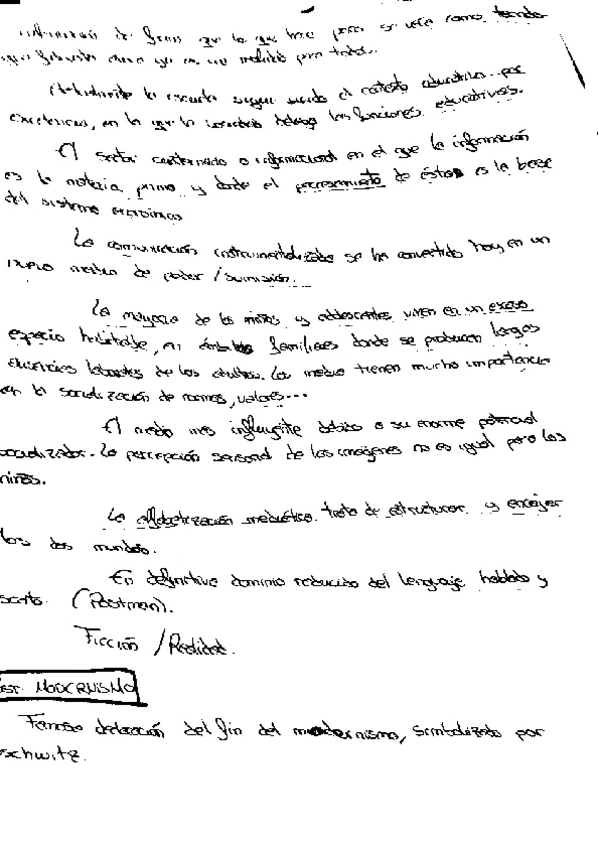 de forma que lo que hace pocos se veía como
ahora ya es una realidad para todos.
la escuela sigue siendo el contexto educativo por
excelencia, en la que la sociedad delega las funciones educativas.
El sector cuaternario o informacional en el que la información
es la materia prima y donde el procesamiento de éstas es la base
del sistema económico
La comunicación instrumentalizada se ha convertido hoy en un
nuevo medio de poder / sumisión.
La mayoría de los niños y adolescentes viven en un escaso
espacio habitable, en ámbitos familiares donde se producen largas
ausencias laborales de los adultos. Los medios tienen mucha importancia
en la socialización de normas, valores...
El medio más influyente debido a su enorme potencial
socializador. La percepción sensorial de las imágenes no es igual para los
niños.
La alfabetización mediática trata de estructurar y encajar
los dos mundos.
En definitiva dominio reducido del lenguaje hablado y
escrito. (Postman).
Ficción / Realidad.
MODERNISMO
Famosa del fin del modernismo, simbolizado por
schwitz.